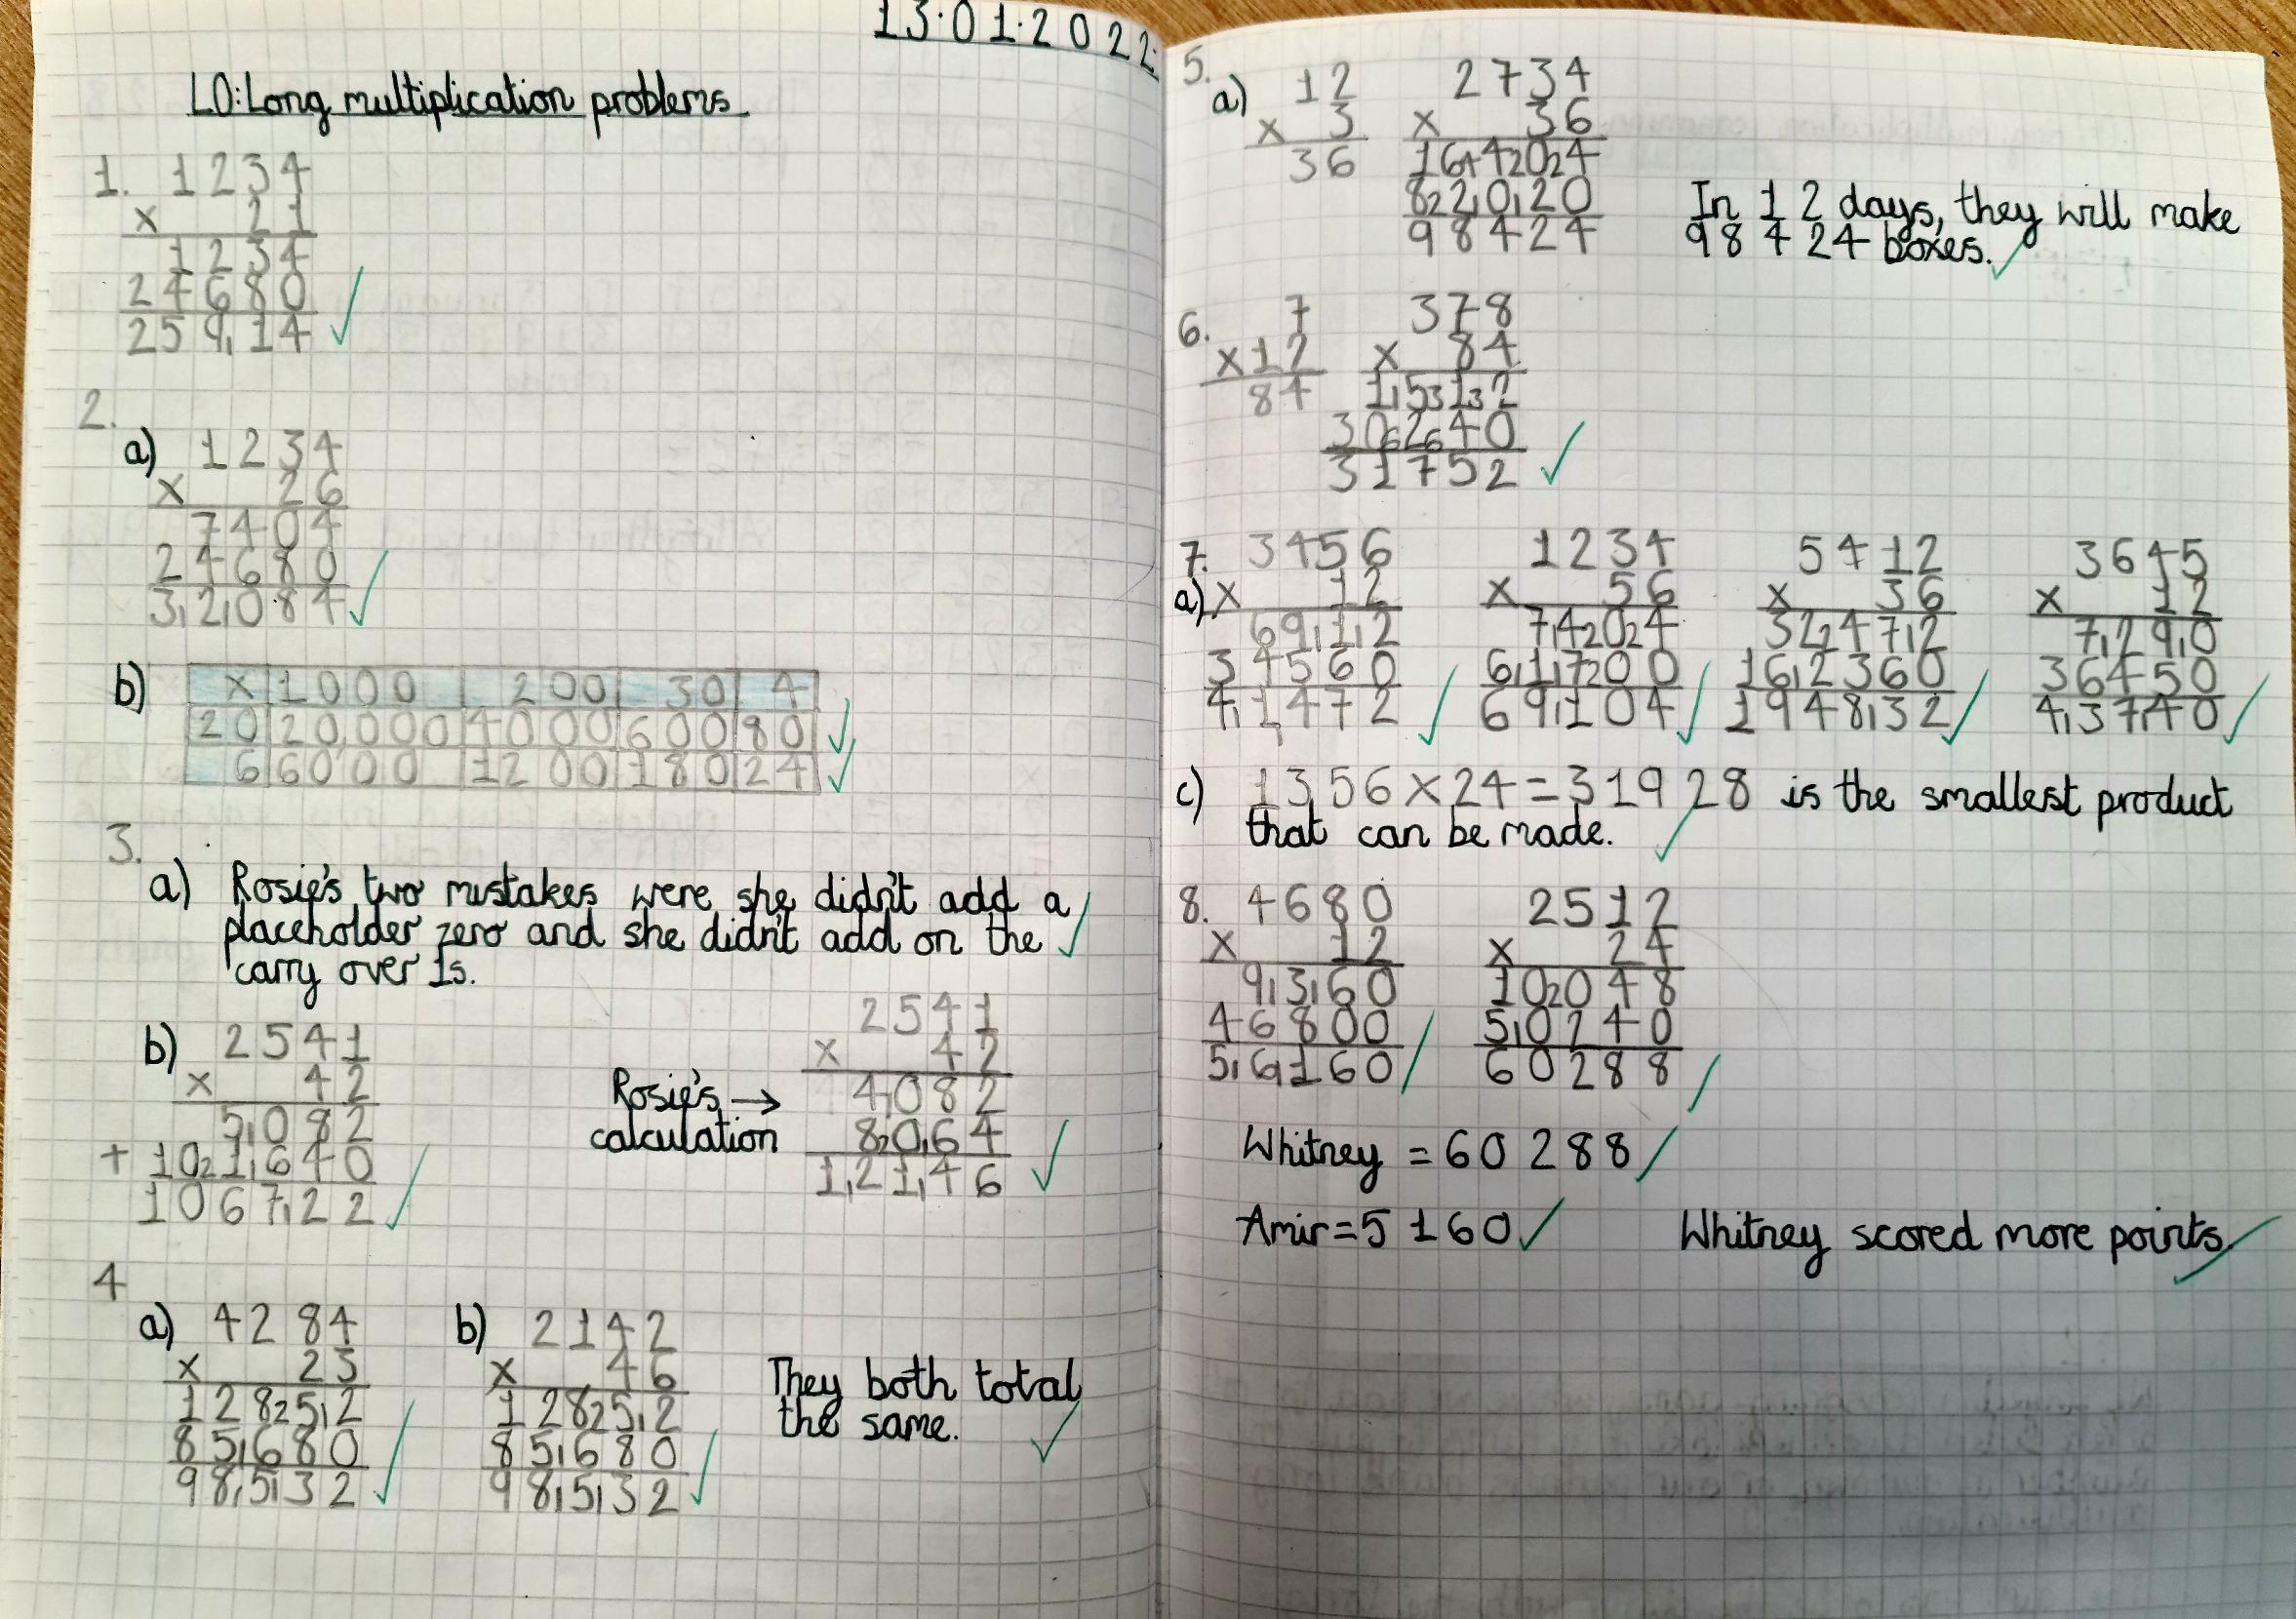 13.01.2022.
LO: Long multiplication problems
1. 1234
x 21
1234
24680
25914
2.
a) 1234
x 26
7404
24680
32084
b) x 1000 200 30 4
20 20,000 4000 600 80
6 6000 1200 180 24
3.
a) Rosie's two mistakes were she didn't add a
placeholder zero and she didn't add on the
carry over 1s.
b) 2541
x 42
5082
+ 101640
106722
Rosie's →
calculation
2541
x 42
4082
8064
12146
4
a) 4284
x 23
12852
85680
98532
b) 2142
x 46
12852
85680
98532
They both total
the same.
5.
a) 12
x 3
36
2734
x 36
16404
82020
98424
In 12 days, they will make
98424 boxes.
6. 7
x 12
84
378
x 84
1512
30240
31752
7.
a) 3456
x 12
6912
34560
41472
1234
x 56
7404
61700
69104
5412
x 36
32472
162360
194832
3645
x 12
7290
36450
43740
c) 1356 x 24 = 31928 is the smallest product
that can be made.
8. 4680
x 12
9360
46800
56160
2512
x 24
10048
50240
60288
Whitney = 60288
Amir = 5160
Whitney scored more points.